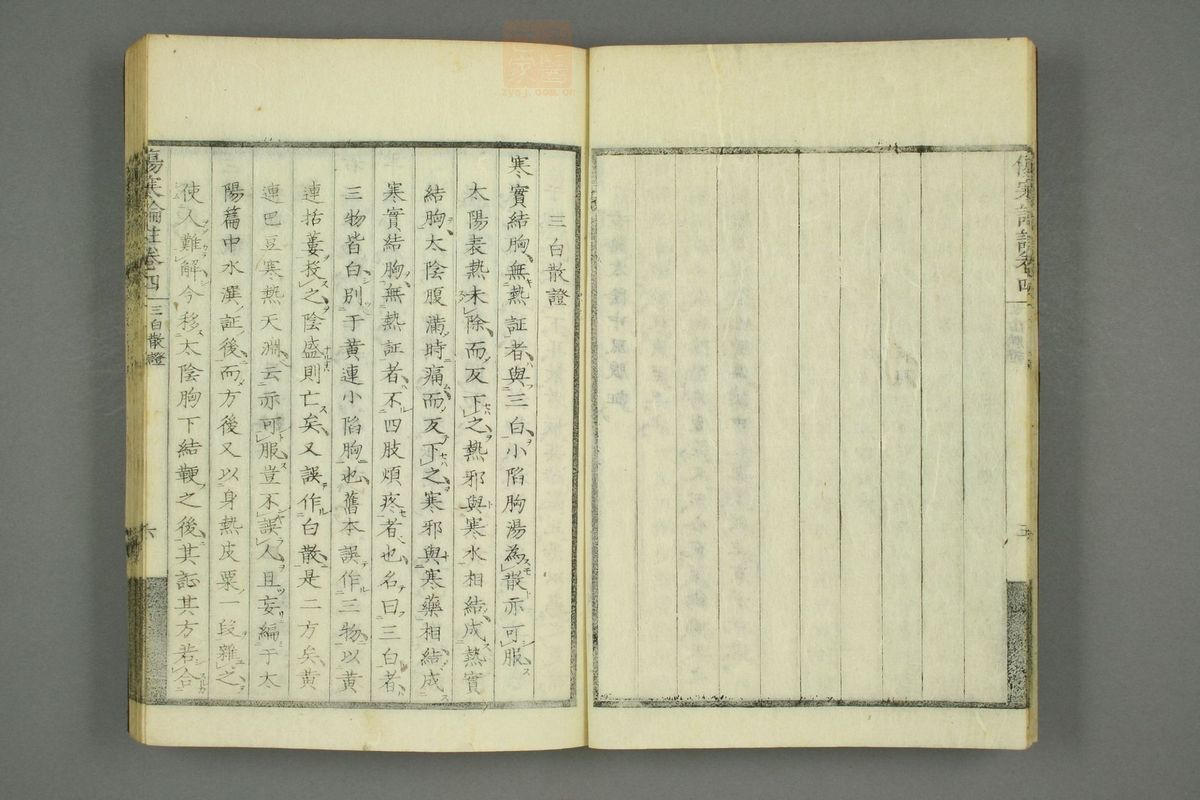 五
三白散證
寒實結胸無熱証者與三白小陷胸湯為散亦可服
太陽表熱未除而反下之熱邪與寒水相結成熱實
結胸太陰腹滿時痛而反下之寒邪與寒藥相結成
寒實結胸無熱証者不四肢煩疼者也名曰三白者
三物皆白別于黃連小陷胸也舊本誤作三物以黃
連括蔞投之陰盛則亡矣又誤作白散是二方矣黃
連巴豆寒熱天淵云亦可服豈不誤人且妄編于太
陽篇中水潠証後而方後又以身熱皮粟一段雜之
使人難解今移太陰胸下結鞕之後其証其方若合
傷寒論註卷四
三白散證
六
zysj.com.cn